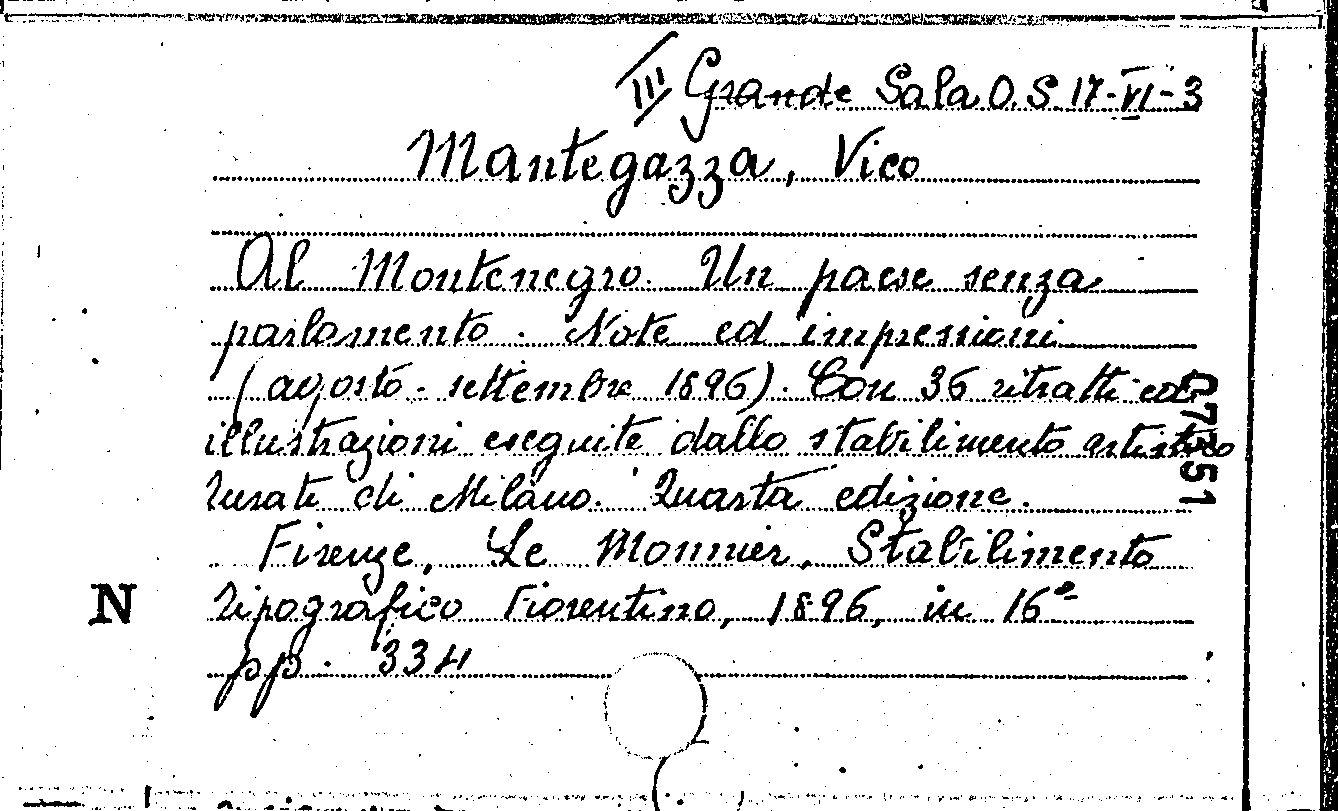 III Grande Sala O.S. 17-VI-3
Mantegazza, Vico
Al Montenegro. Un paese senza
parlamento. Note ed impressioni
(agosto - settembre 1896). Con 36 ritratti ed
illustrazioni eseguite dallo stabilimento artistico
Turati di Milano. Quarta edizione.
Firenze, Le Monnier, Stabilimento
Tipografico Fiorentino, 1896, in 16°
pp. 334
N
07351